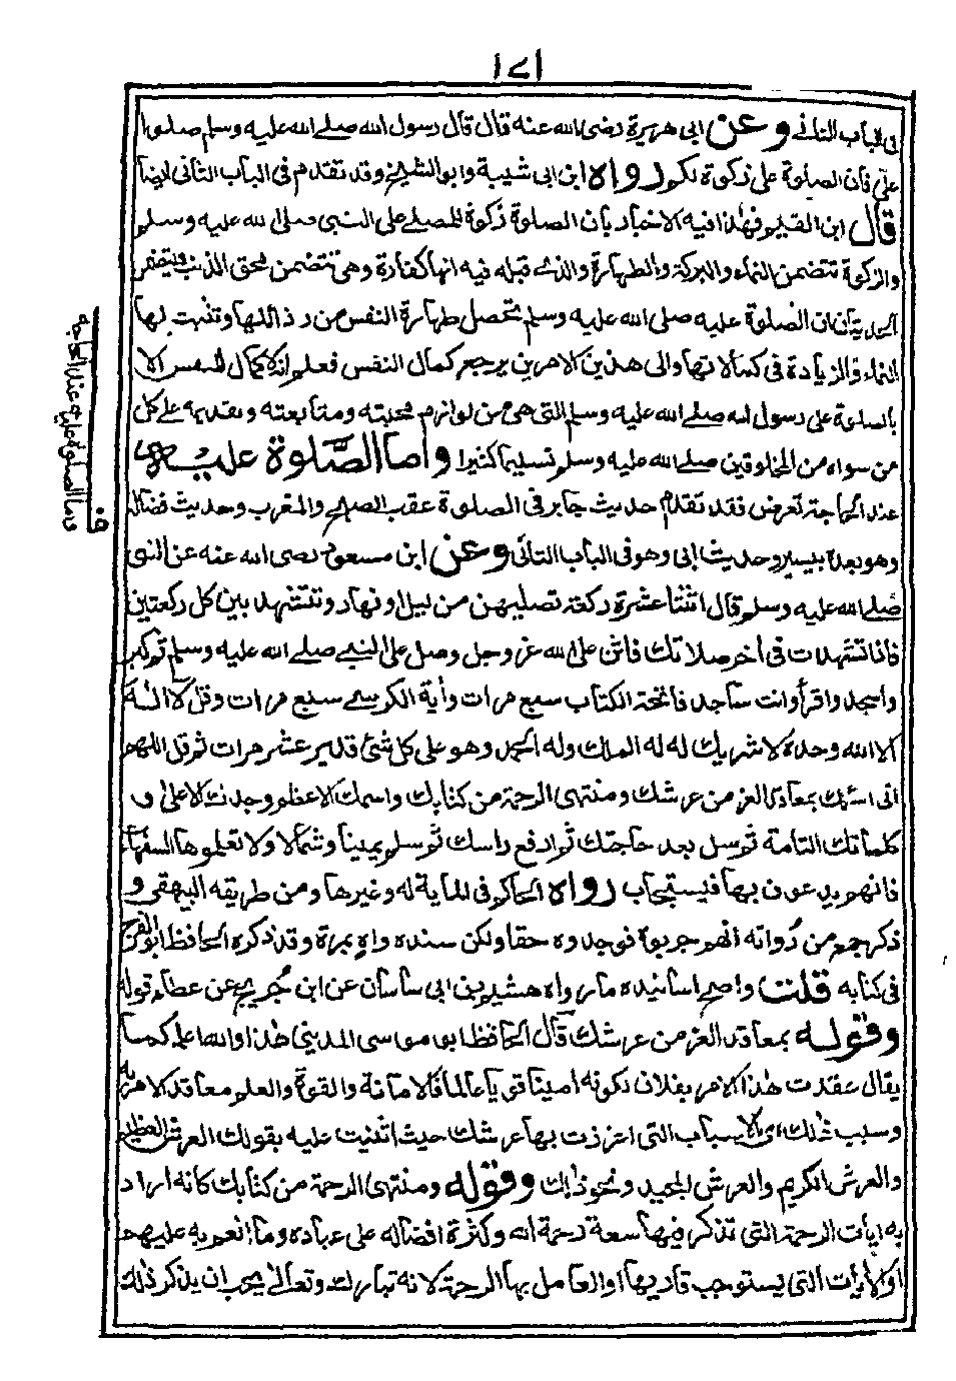 ١٧١
فى الباب الثانى وعن ابى هريرة رضى الله عنه قال قال رسول الله صلے الله عليه وسلم صلوا
علىّ فان الصلوة علىّ زكوة لكم رواه ابن ابى شيبة وابو الشيخ وقد تقدم فى الباب الثانى ايضا
قال ابن القيم فهذا فيه الاخبار بان الصلوة زكوة للمصلے على النبى صلى الله عليه وسلم
والزكوة تتضمن النماء والبركة والطهارة والذے قبله فيه انها كفارة وهى تتضمن محق الذنب فتضمن
الحديثان ان الصلوة عليه صلى الله عليه وسلم تحصل طهارة النفس من رذائلها وتثبت لها
النماء والزيادة فى كمالاتها والى هذين الامرين يرجع كمال النفس فعلم انه لا كمال للنفس الا
بالصلوة على رسول الله صلے الله عليه وسلم التى هى من لوازم محبته ومتابعته وتقديمه علے كل
من سواه من المخلوقين صلے الله عليه وسلم تسليما كثيرا واما الصَّلوة عليه
عند الحاجة تعرض فقد تقدم حديث جابر فى الصلوة عقب الصبح والمغرب وحديث فضالة
وهو بعده بيسير وحديث ابى وهو فى الباب الثانى وعن ابن مسعود رضى الله عنه عن النبى
صلے الله عليه وسلم قال اثنتا عشرة ركعة تصليهن من ليل او نهار وتتشهد بين كل ركعتين
فاذا تشهدت فى اخر صلاتك فاثن على الله عز وجل وصل على النبے صلے الله عليه وسلم ثم كبر
واسجد واقرأ وانت ساجد فاتحة الكتاب سبع مرات وأية الكرسے سبع مرات وقل لا اله
الا الله وحده لا شريك له له الملك وله الحمد وهو على كل شئ قدير عشر مرات ثم قل اللهم
انى اسئلك بمعاقد العز من عرشك ومنتهى الرحمة من كتابك واسمك الاعظم وجدك الاعلى و
كلماتك التامة ثم سل بعد حاجتك ثم ارفع راسك ثم سلم يمينا وشمالا ولا تعلموها السفهاء
فانهم يدعون بها فيستجاب رواه الحاكم فى المائة له وغيرها ومن طريقه البيهقى و
ذكر جمع من رُواته انهم جربوه فوجدوه حقا ولكن سنده واهٍ بمرة وقد ذكره الحافظ ابو الفرج
فى كتابه قلت واصح اسانيده ما رواه هشيم بن ابى ساسان عن ابن جُريج عن عطاء قوله
وقوله بمعاقد العز من عرشك قال الحافظ ابو موسى المدينى هذا والله اعلم كما
يقال عقدت هذا الامر بفلان لكونه امينا قويا عالما فالامانة والقوة والعلم معاقد الامر به
وسبب ذلك اى بالاسباب التى اعززت بها عرشك حيث اثنيت عليه بقولك العرش العظيم
والعرش الكريم والعرش المجيد ونحو ذلك وقوله ومنتهى الرحمة من كتابك كانه اراد
به ايات الرحمة التى تذكر فيها سعة رحمة الله وكثرة افضاله على عباده وما انعم به عليهم
او الايات التى يستوجب قاريها او العامل بها الرحمة لانه تبارك وتعالے يحب ان يذكر ذلك
واما الصلوة عليه عند الحاجة